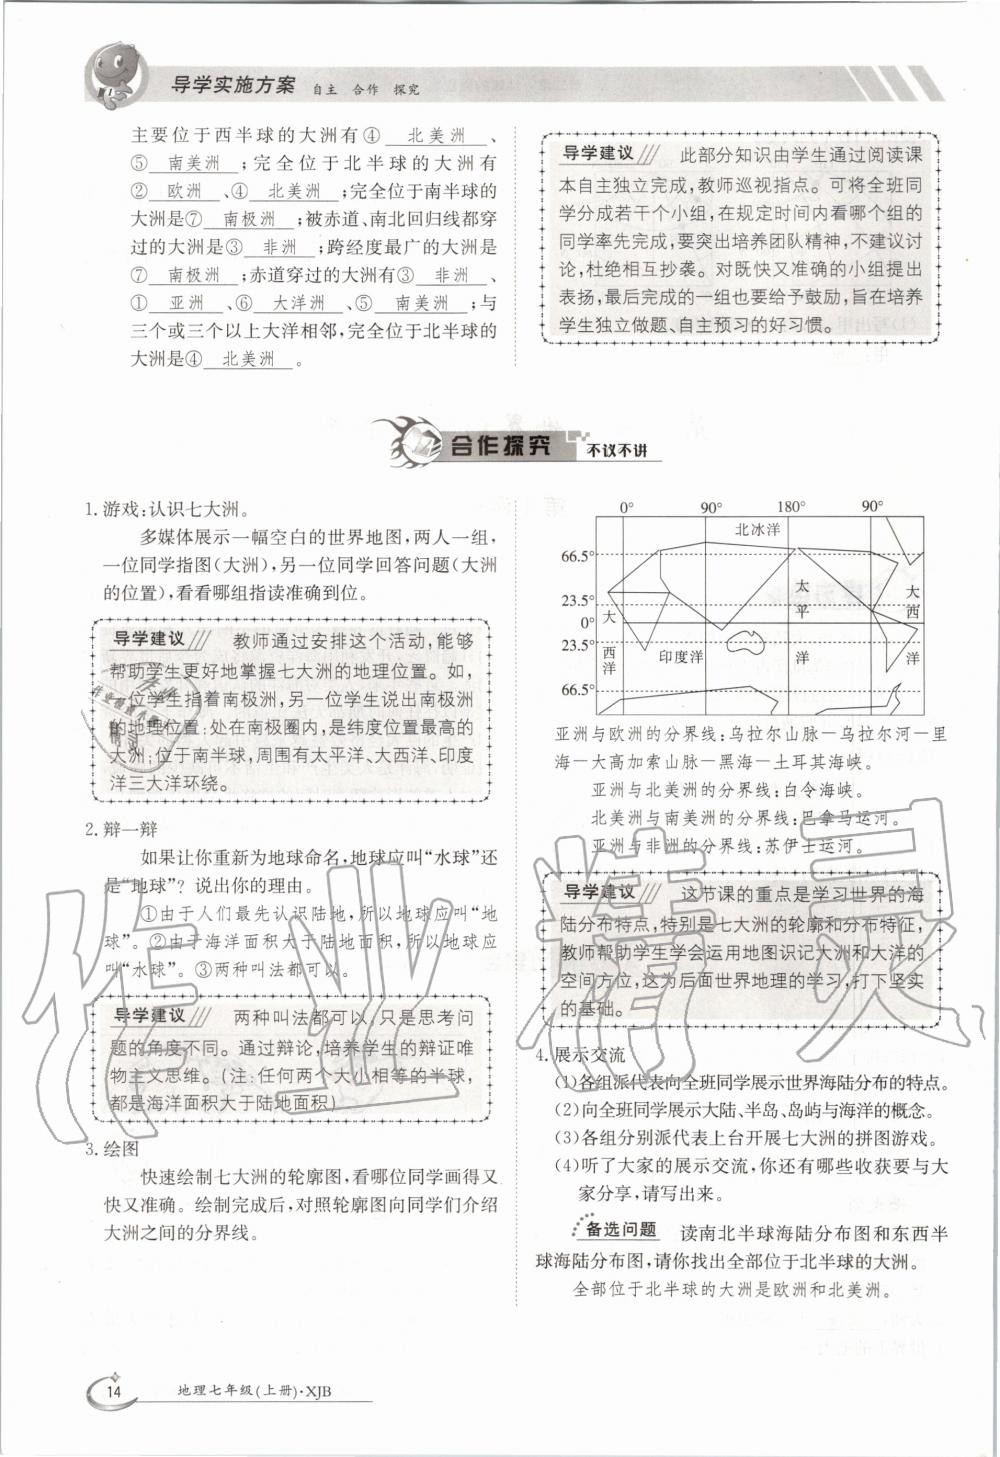 导学实施方案 自主 合作 探究
主要位于西半球的大洲有④ 北美洲 、
⑤ 南美洲 ;完全位于北半球的大洲有
② 欧洲 、④ 北美洲 ;完全位于南半球的
大洲是⑦ 南极洲 ;被赤道、南北回归线都穿
过的大洲是③ 非洲 ;跨经度最广的大洲是
⑦ 南极洲 ;赤道穿过的大洲有③ 非洲 、
① 亚洲 、⑥ 大洋洲 、⑤ 南美洲 ;与
三个或三个以上大洋相邻,完全位于北半球的
大洲是④ 北美洲 。
导学建议 此部分知识由学生通过阅读课
本自主独立完成,教师巡视指点。可将全班同
学分成若干个小组,在规定时间内看哪个组的
同学率先完成,要突出培养团队精神,不建议讨
论,杜绝相互抄袭。对既快又准确的小组提出
表扬,最后完成的一组也要给予鼓励,旨在培养
学生独立做题、自主预习的好习惯。
合作探究 不议不讲
1. 游戏:认识七大洲。
多媒体展示一幅空白的世界地图,两人一组,
一位同学指图(大洲),另一位同学回答问题(大洲
的位置),看看哪组指读准确到位。
导学建议 教师通过安排这个活动,能够
帮助学生更好地掌握七大洲的地理位置。如,
一位学生指着南极洲,另一位学生说出南极洲
的地理位置:处在南极圈内,是纬度位置最高的
大洲;位于南半球,周围有太平洋、大西洋、印度
洋三大洋环绕。
2. 辩一辩
如果让你重新为地球命名,地球应叫“水球”还
是“地球”? 说出你的理由。
①由于人们最先认识陆地,所以地球应叫“地
球”。②由于海洋面积大于陆地面积,所以地球应
叫“水球”。③两种叫法都可以。
导学建议 两种叫法都可以,只是思考问
题的角度不同。通过辩论,培养学生的辩证唯
物主义思维。(注:任何两个大小相等的半球,
都是海洋面积大于陆地面积)
3. 绘图
快速绘制七大洲的轮廓图,看哪位同学画得又
快又准确。绘制完成后,对照轮廓图向同学们介绍
大洲之间的分界线。
0° 90° 180° 90°
北冰洋
66.5°
23.5°
0°
23.5°
66.5°
大西洋
印度洋
太平洋
大西洋
亚洲与欧洲的分界线:乌拉尔山脉—乌拉尔河—里
海—大高加索山脉—黑海—土耳其海峡。
亚洲与北美洲的分界线:白令海峡。
北美洲与南美洲的分界线:巴拿马运河。
亚洲与非洲的分界线:苏伊士运河。
导学建议 这节课的重点是学习世界的海
陆分布特点,特别是七大洲的轮廓和分布特征,
教师帮助学生学会运用地图识记大洲和大洋的
空间方位,这为后面世界地理的学习,打下坚实
的基础。
4. 展示交流
(1)各组派代表向全班同学展示世界海陆分布的特点。
(2)向全班同学展示大陆、半岛、岛屿与海洋的概念。
(3)各组分别派代表上台开展七大洲的拼图游戏。
(4)听了大家的展示交流,你还有哪些收获要与大
家分享,请写出来。
备选问题 读南北半球海陆分布图和东西半
球海陆分布图,请你找出全部位于北半球的大洲。
全部位于北半球的大洲是欧洲和北美洲。
作业精灵
14 地理七年级(上册)·XJB